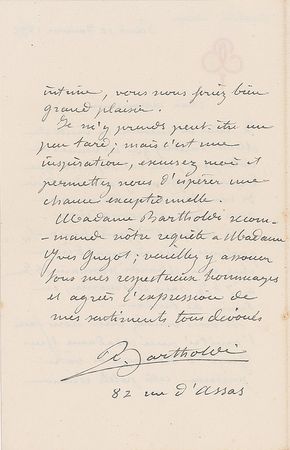 intime, vous nous feriez bien
grand plaisir.
Je m'y prends peut être un
peu tard; mais c'est une
inspiration, excusez moi et
permettez nous d'espérer une
chance exceptionnelle.
Madame Bartholdi recom-
mande nôtre requête a Madame
Yves Guyot; veuillez y associer
tous mes respectueux hommages
et agréer l'expression de
mes sentiments tous dévoués
Bartholdi
82 rue d'Assas